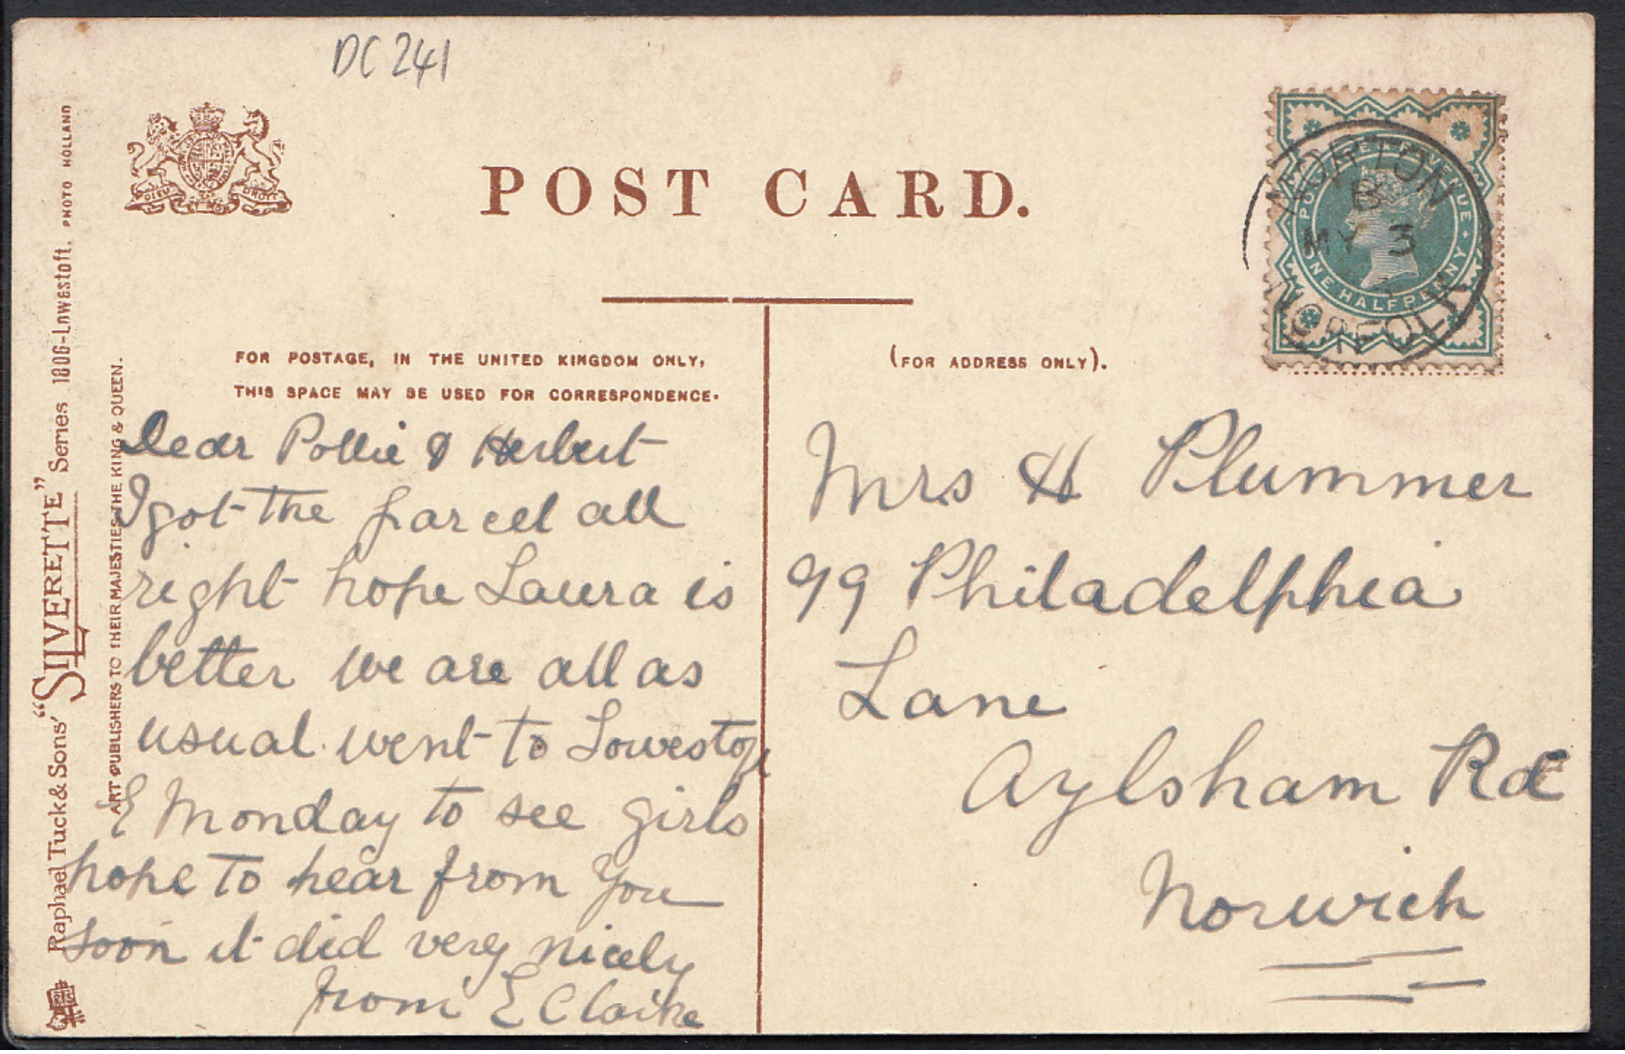 DC 241
POST CARD.
DIEU ET MON DROIT
NORTON
B
MY 3
NORFOLK
POSTAGE & REVENUE
ONE HALFPENNY
FOR POSTAGE, IN THE UNITED KINGDOM ONLY,
THIS SPACE MAY BE USED FOR CORRESPONDENCE.
(FOR ADDRESS ONLY).
Dear Pollie & Herbert
I got the parcel all
right hope Laura is
better we are all as
usual went to Lowestoft
E Monday to see girls
hope to hear from you
soon it did very nicely
from E Clarke
Mrs H Plummer
99 Philadelphia
Lane
Aylsham Rd
Norwich
Raphael Tuck & Sons' "SILVERETTE" Series 1806-Lowestoft. PHOTO HOLLAND
ART PUBLISHERS TO THEIR MAJESTIES THE KING & QUEEN.